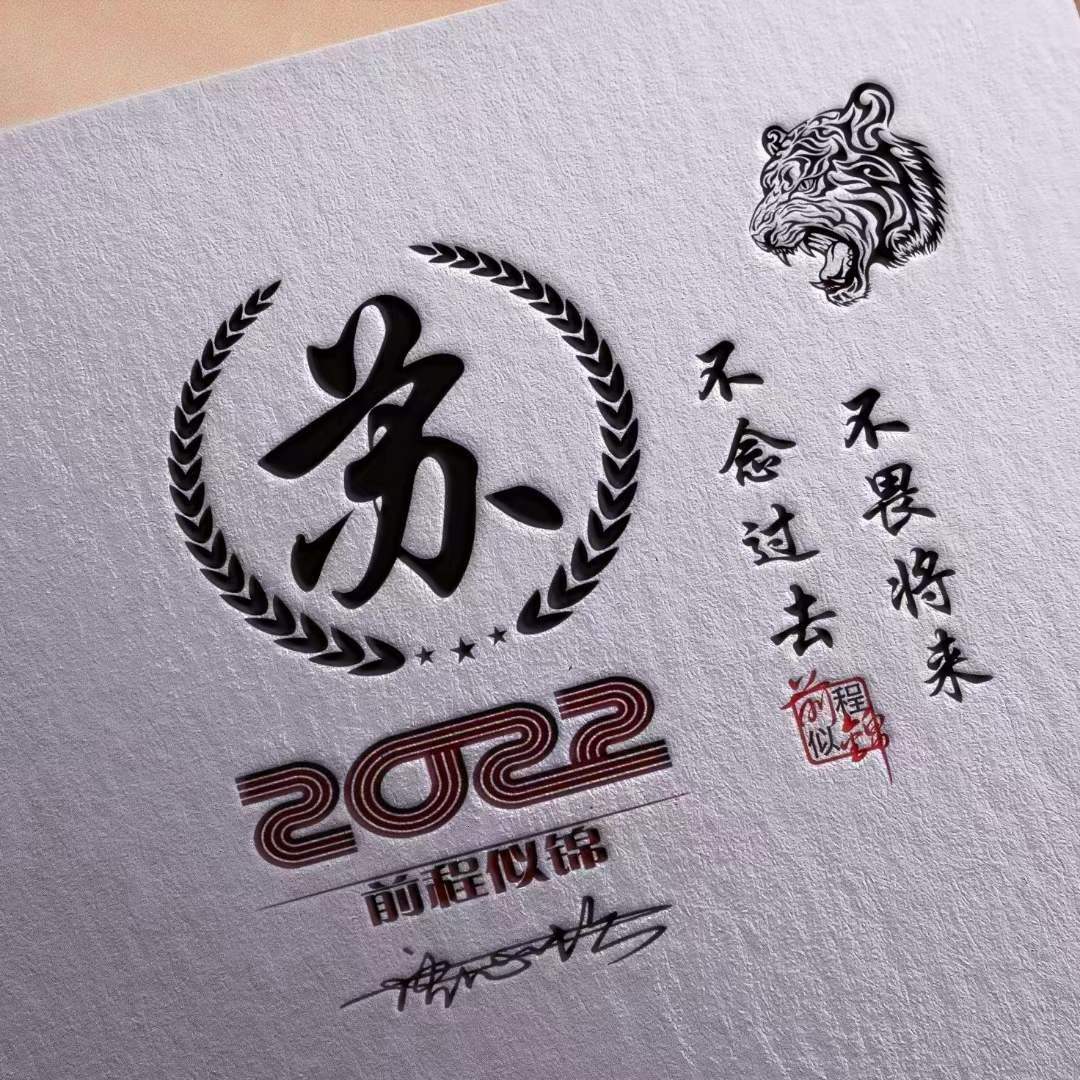 苏
2022
前程似锦
不念过去
不畏将来
前程
似锦